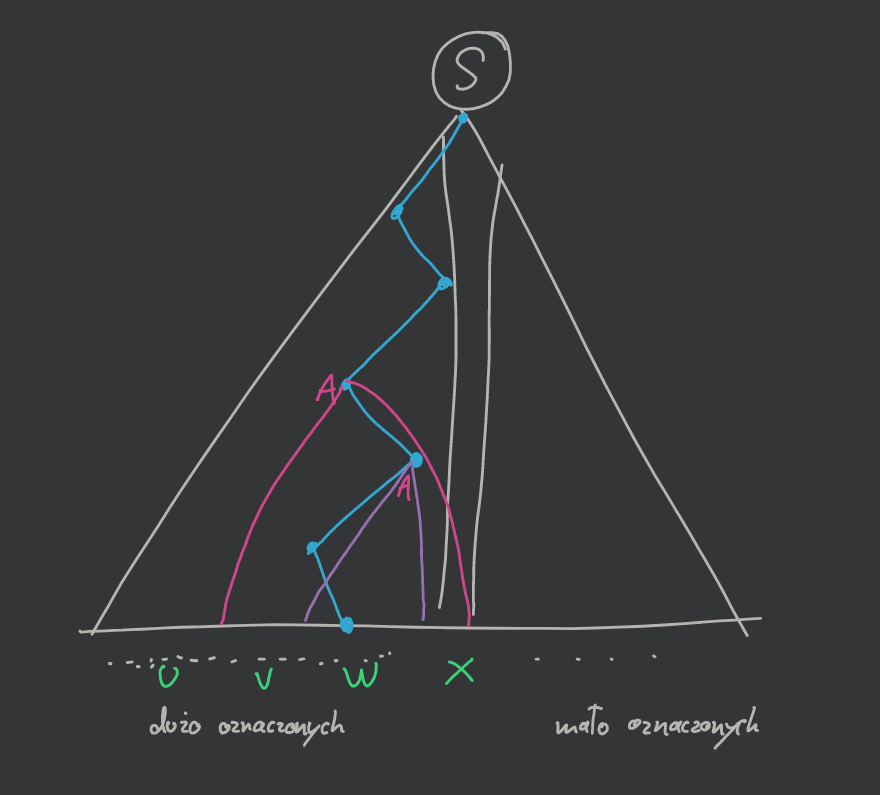 S
A
A
U V W X
dużo oznaczonych mało oznaczonych